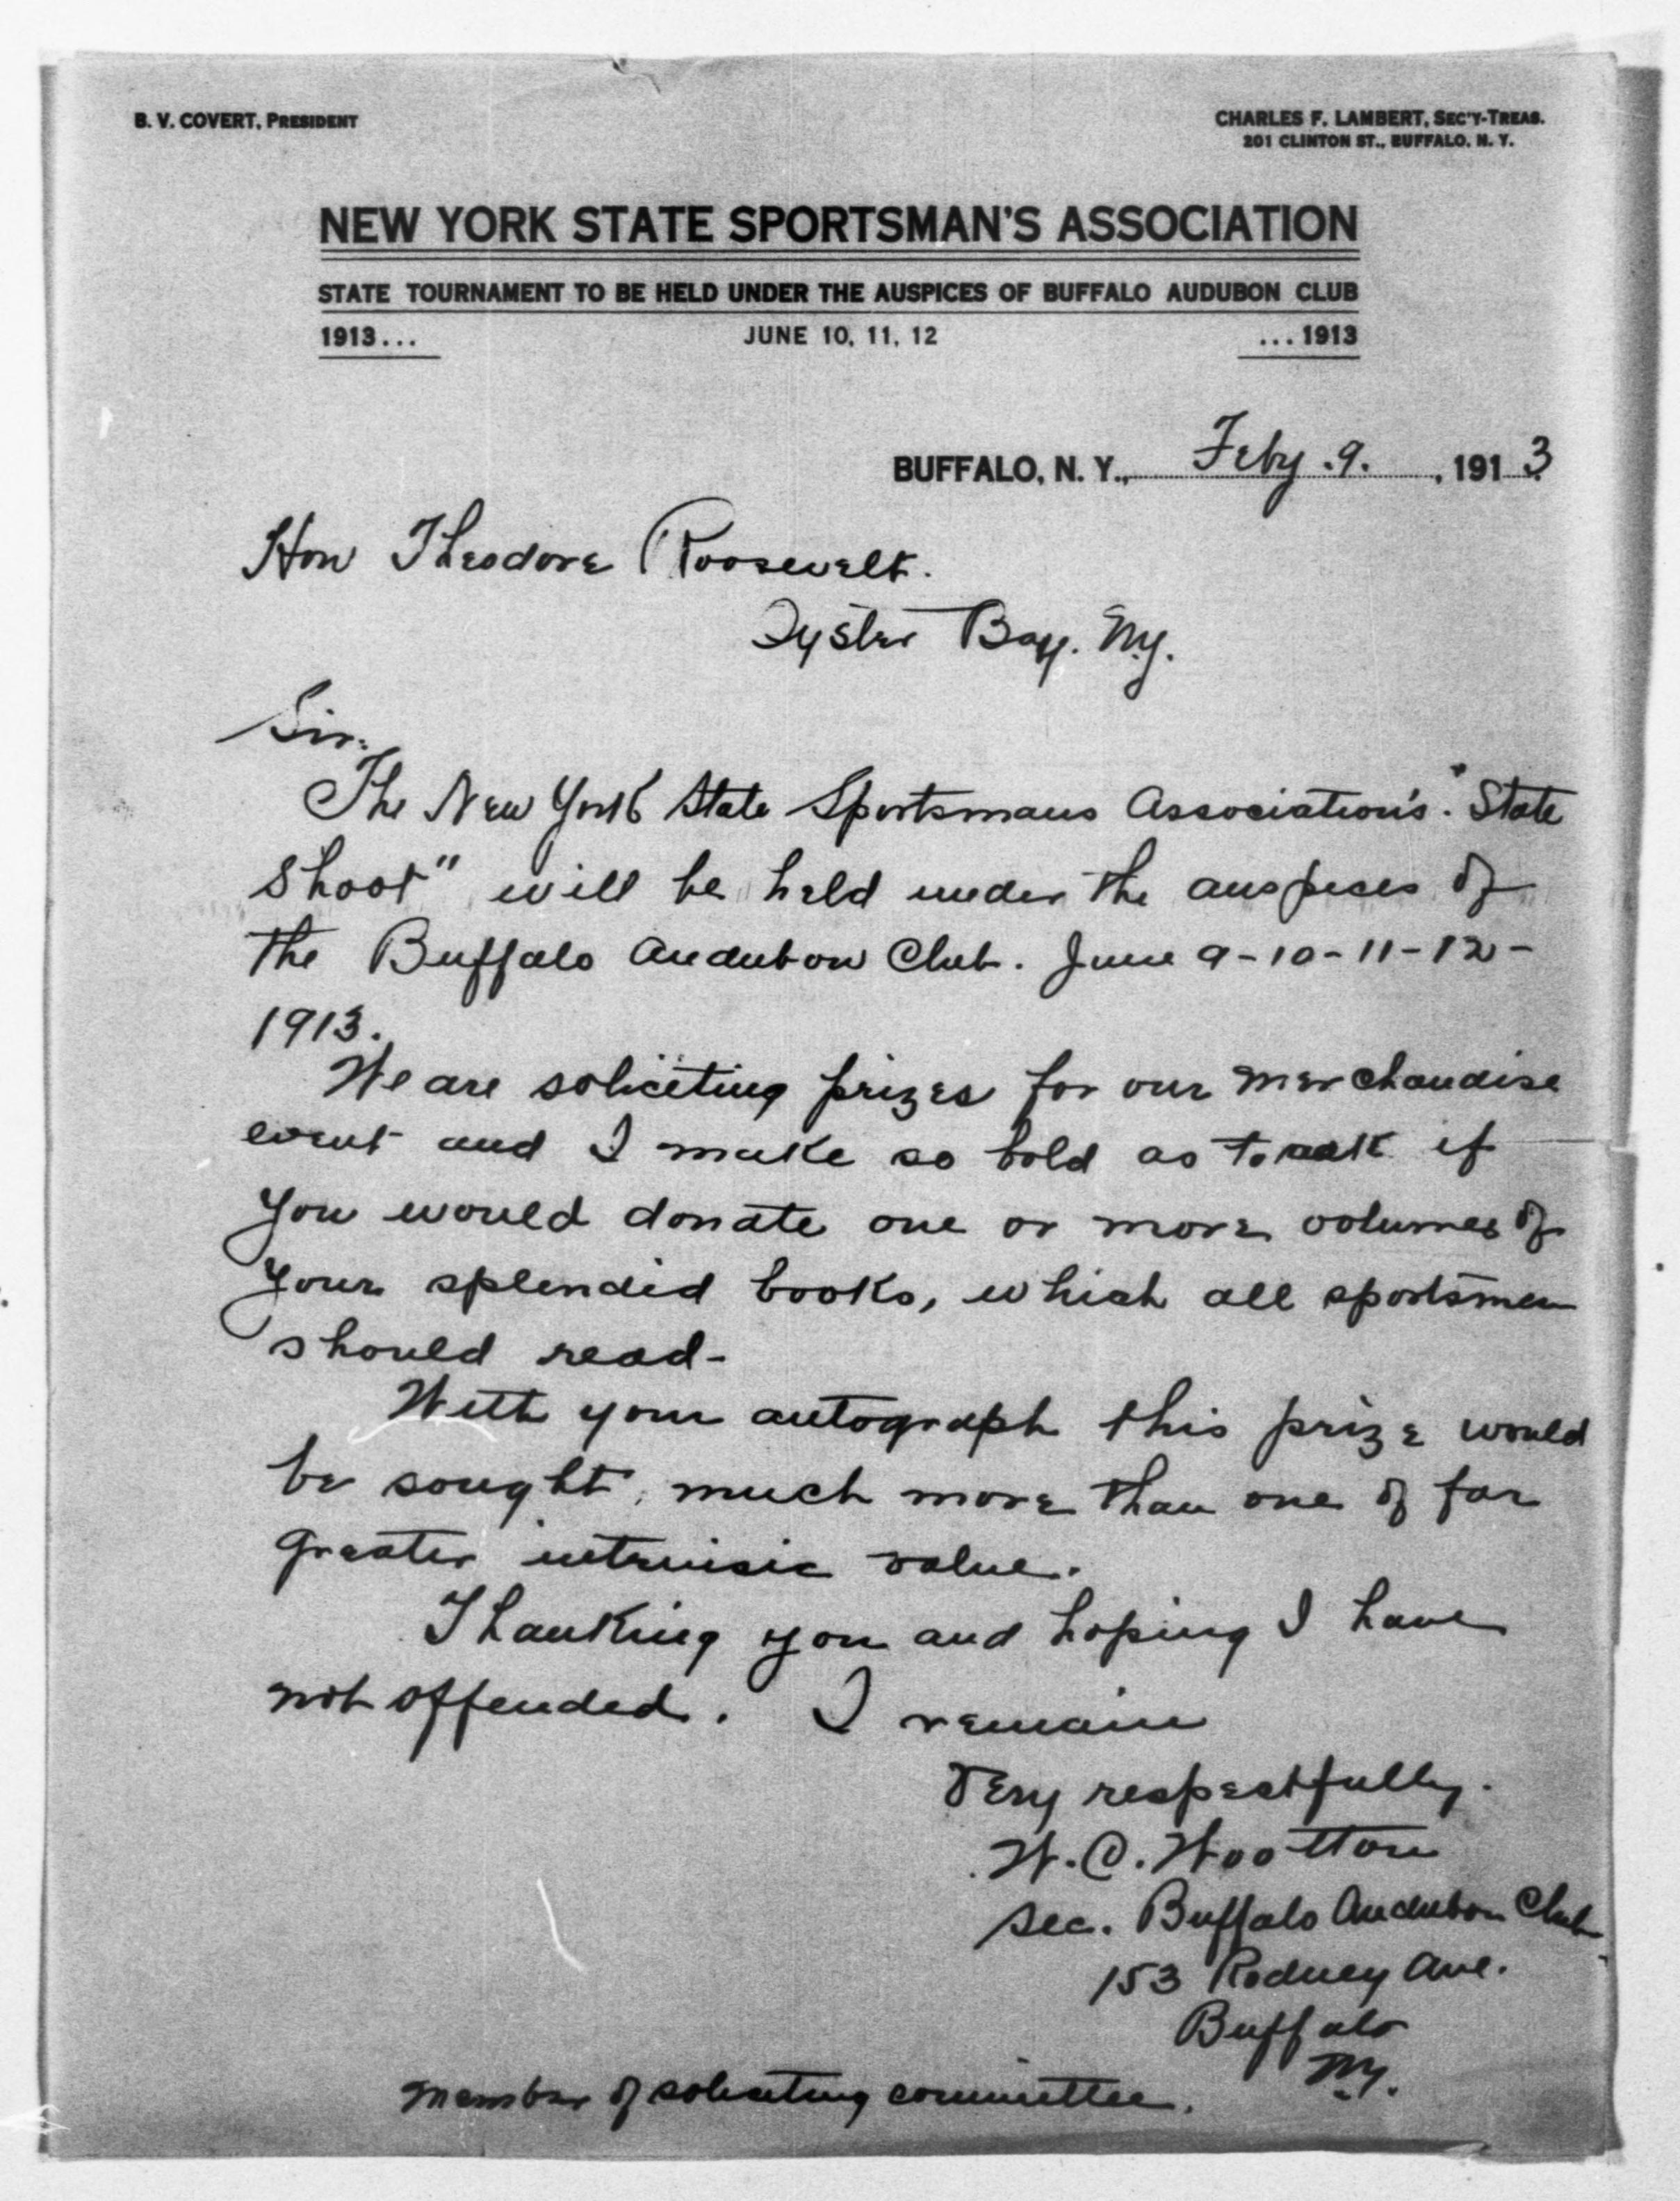 B. V. COVERT, PRESIDENT
CHARLES F. LAMBERT, SEC'Y-TREAS.
201 CLINTON ST., BUFFALO, N. Y.
NEW YORK STATE SPORTSMAN'S ASSOCIATION
STATE TOURNAMENT TO BE HELD UNDER THE AUSPICES OF BUFFALO AUDUBON CLUB
1913... JUNE 10, 11, 12 ...1913
BUFFALO, N. Y., Feby. 9. , 1913
Hon Theodore Roosevelt.
Oyster Bay. N.Y.
Sir:
The New York State Sportsmans Association's. "State
Shoot" will be held under the auspices of
the Buffalo Audubon Club. June 9-10-11-12-
1913.
We are soliciting prizes for our merchandise
event and I make so bold as to ask if
you would donate one or more volumes of
your splendid books, which all sportsmen
should read-
With your autograph this prize would
be sought, much more than one of far
greater intrinsic value.
Thanking you and hoping I have
not offended. I remain
Very respectfully.
W. C. Wootton
Sec. Buffalo Audubon Club
153 Rodney Ave.
Buffalo
N.Y.
Member of soliciting committee.